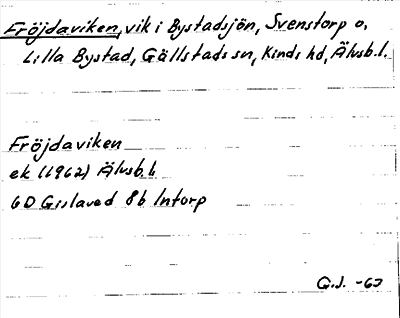 Fröjdaviken, vik i Bystadsjön, Svenstorp o.
Lilla Bystad, Gällstads sn, Kinds hd, Älvsb.l.
Fröjdaviken
ek (1962) Älvsb.l.
6D Gislaved 8b Intorp
G.J. -63